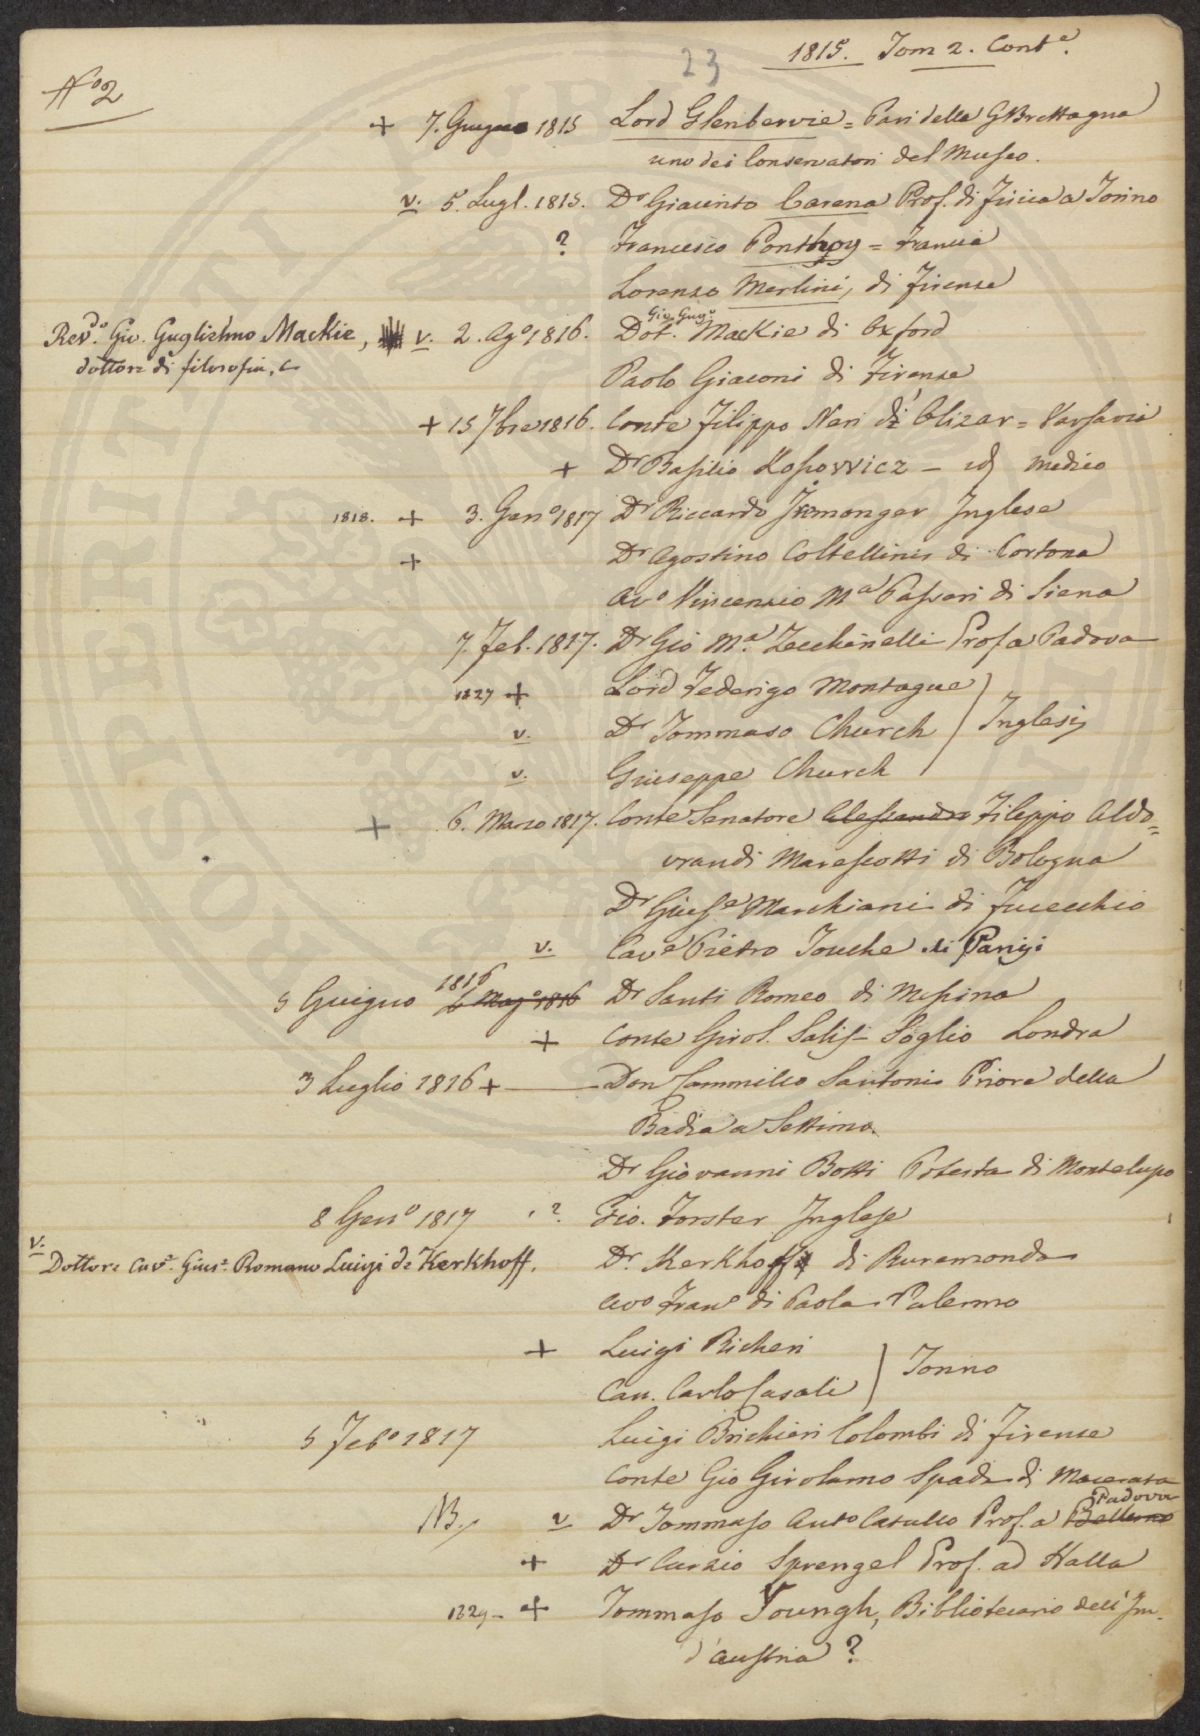 1815. Tom 2. Cont.e
23
No 2
+ 7. Giugno 1815 Lord Glenbervie = Pari della G Brettagna
uno dei Conservatori del Museo.
v. 5. Lugl. 1815. Dr Giacinto Carena Prof. di fisica a Torino
? Francesco = Francia
Lorenzo Merlini, di Firenze
Gio Gugo
Revdo. Gio. Guglielmo Mackie, v. 2. Ago 1816. Dot. Mackie di Oxford
dottore di filosofia, &
Paolo Giaconi di Firenze
+ 15 7bre 1816. Conte Filippo Neri di Olizar = Varsavia
+ Dr Basilio Kosowicz – id medico
1818. + 3. Geno 1817 Dr Riccardo Iremonger Inglese
+ Dr Agostino Coltellini di Cortona
Avo Vincenzio Ma Passeri di Siena
7. Feb. 1817. Dr Gio Ma. Zecchinelli Prof a Padova
1827 + Lord Federigo Montague
v. Dr Tommaso Church Inglesi
v. Giuseppe Church
+ 6. Marzo 1817. Conte Senatore Alessandro Filippo Aldo=
vrandi Marescotti di Bologna
Dr Giuse Marchiani di Fucecchio
v. Cave Pietro Touche di Parigi
1816
5 Giugno 6 Mago 1816 Dr Santi Romeo di Messina
+ Conte Girol. Salis- Soglio Londra
3 Luglio 1816 + Don Cammillo Santoni Priore della
Badia a Settimo.
Dr Giovanni Botti Potestà di Montelupo
8 Geno 1817 ? Gio. Forster Inglese
v.
Dottore Cave. Giuse. Romano Luigi de Kerkhoff. Dr. Kerkhoff di Ruremonda
Avo Frano di Paola Palermo
+ Luigi Richeri
Torino
Can. Carlo Casali
5 Febo 1817 Luigi Brichieri Colombi di Firenze
Conte Gio Girolamo Spada di Macerata
Padova
NB. v Dr Tommaso Anto Catullo Prof. a Belluno
+ Dr Curzio Sprengel Prof. ad Halla
1829 – + Tommaso Youngh, Bibliotecario dell' Im.
d'Austria ?